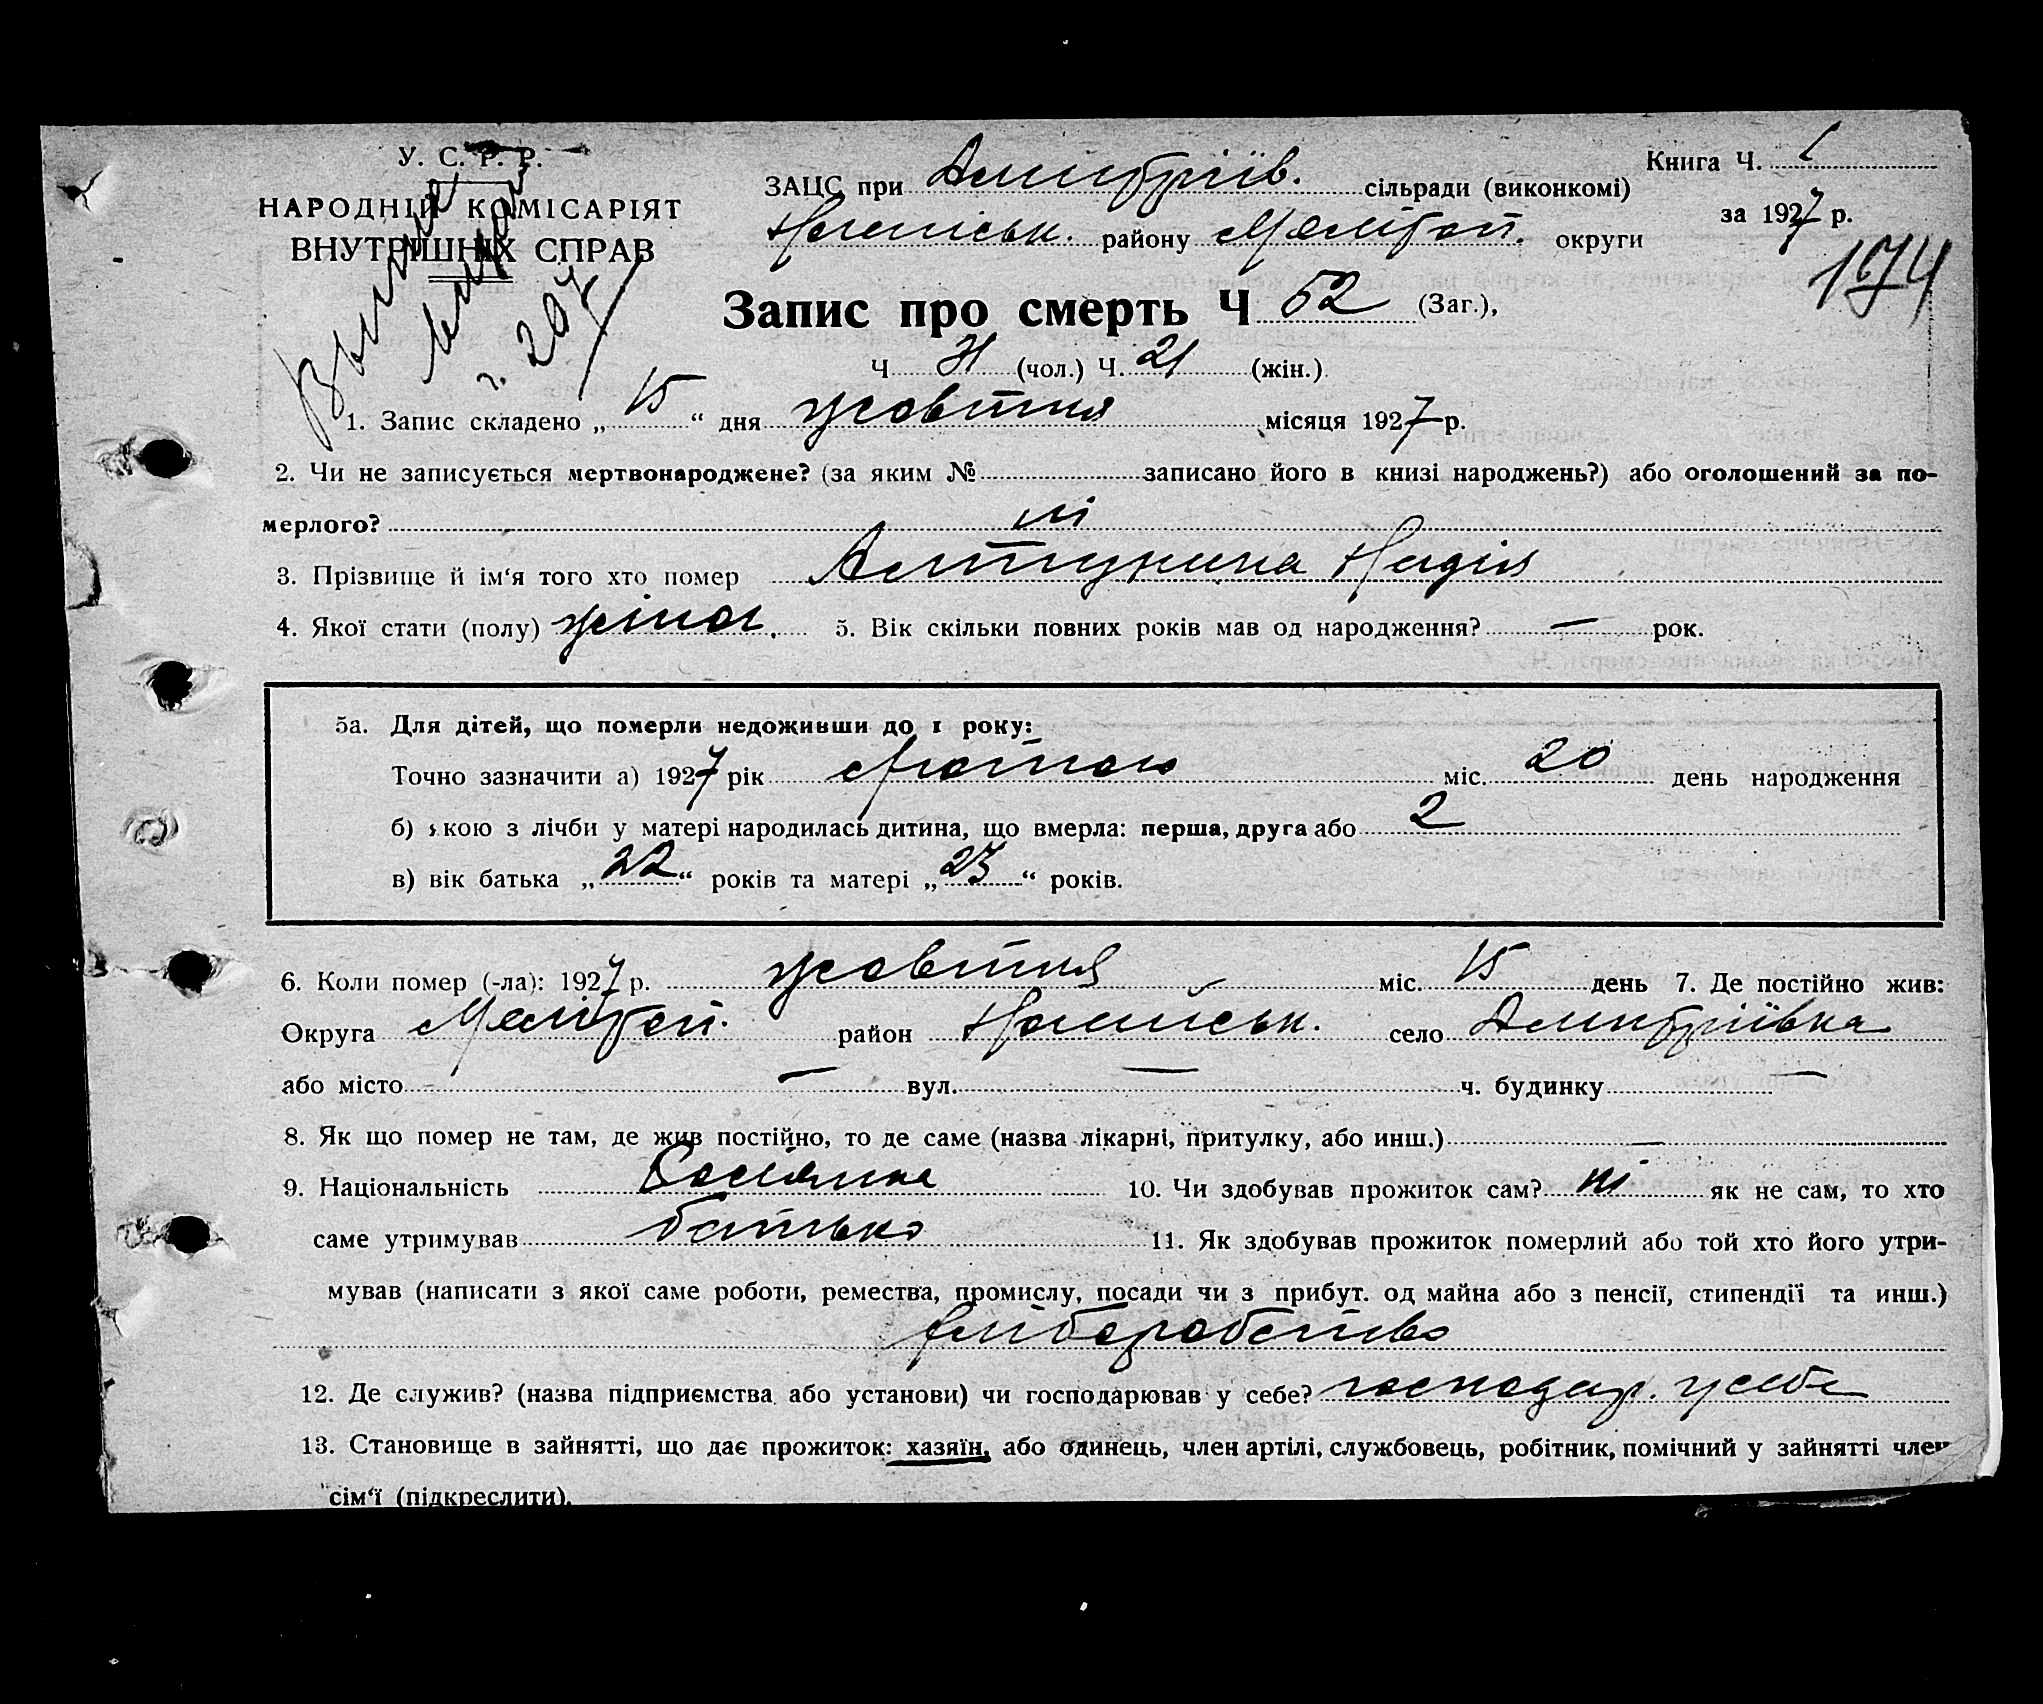 У. С. Р. Р.
НАРОДНІЙ КОМІСАРІЯТ
ВНУТРІШНІХ СПРАВ
Книга Ч.
ЗАЦС при Дмитріїв. сільради (виконкомі)
за 1927 р.
Ногайськ. району Мелітоп. округи
174
Запис про смерть Ч 52 (Заг.),
Ч 31 (чол.) Ч. 21 (жін.)
1. Запис складено „ 15 “ дня жовтня місяця 1927 р.
2. Чи не записується мертвонароджене? (за яким № записано його в книзі народжень?) або оголошений за по-
мерлого? ні
3. Прізвище й ім‘я того хто помер Алтунина Надія
4. Якої стати (полу) жіноч. 5. Вік скільки повних років мав од народження? — рок.
5а. Для дітей, що померли недоживши до 1 року:
Точно зазначити а) 1927 рік лютого міс. 20 день народження
б) якою з лічби у матері народилась дитина, що вмерла: перша, друга або 2
в) вік батька „ 22 “ років та матері „ 23 “ років.
6. Коли помер (-ла): 1927 р. жовтня міс. 15 день 7. Де постійно жив:
Округа Мелітоп. район Ногайськ. село Дмитріївка
або місто — вул. — ч. будинку —
8. Як що помер не там, де жив постійно, то де саме (назва лікарні, притулку, або инш.) —
9. Національність 10. Чи здобував прожиток сам? ні як не сам, то хто
саме утримував батько 11. Як здобував прожиток померлий або той хто його утри-
мував (написати з якої саме роботи, ремества, промислу, посади чи з прибут. од майна або з пенсії, стипендії та инш.)
хліборобство
12. Де служив? (назва підприємства або установи) чи господарював у себе? господар. у себе
13. Становище в зайнятті, що дає прожиток: хазяїн, або одинець, член артілі, службовець, робітник, помічний у зайнятті член
сім‘ї (підкреслити).